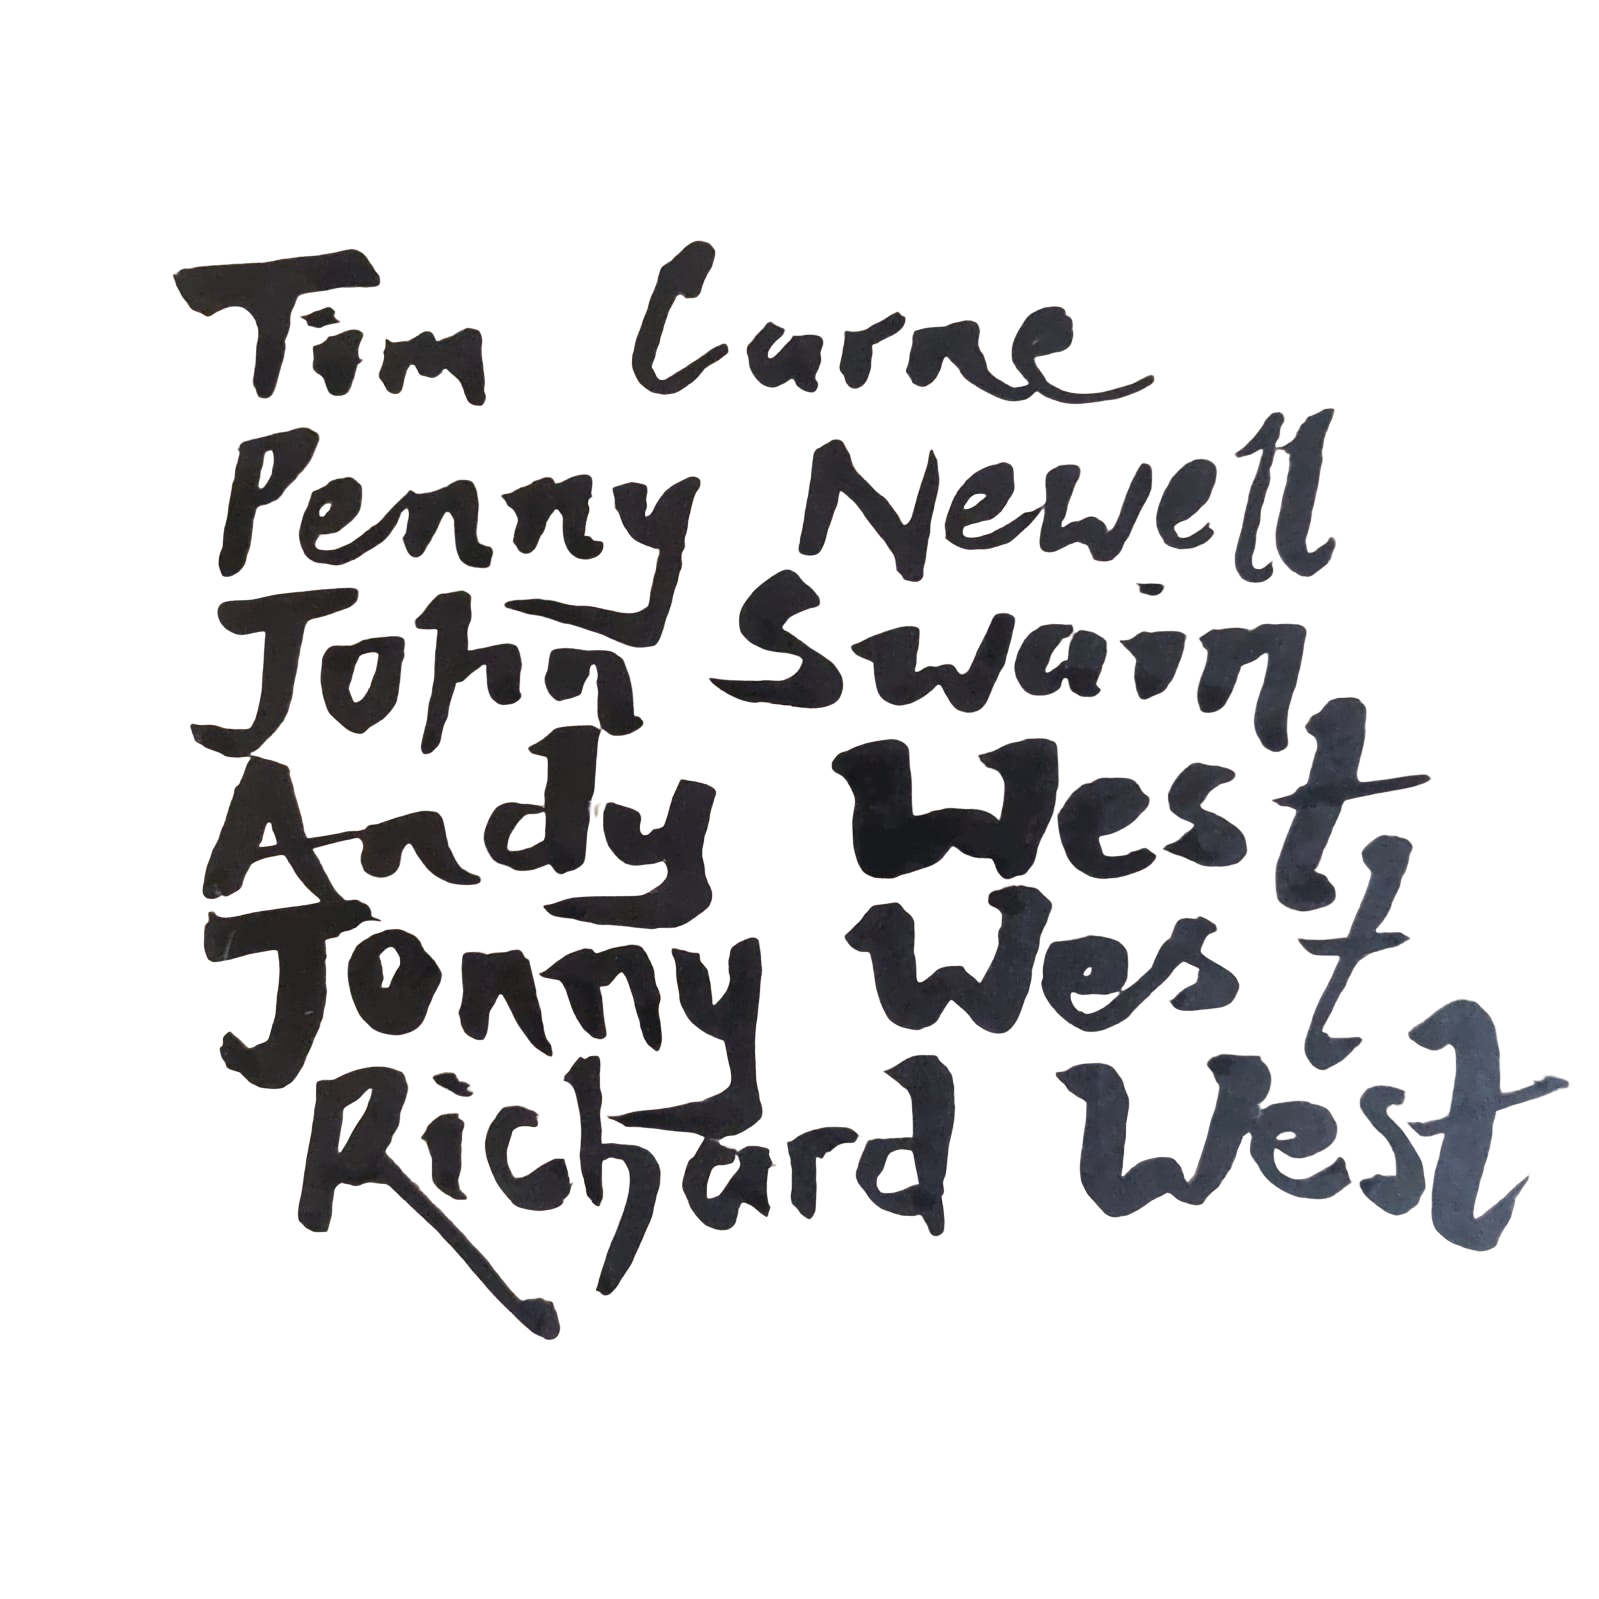 Tim Carne
Penny Newell
John Swain
Andy West
Jonny West
Richard West